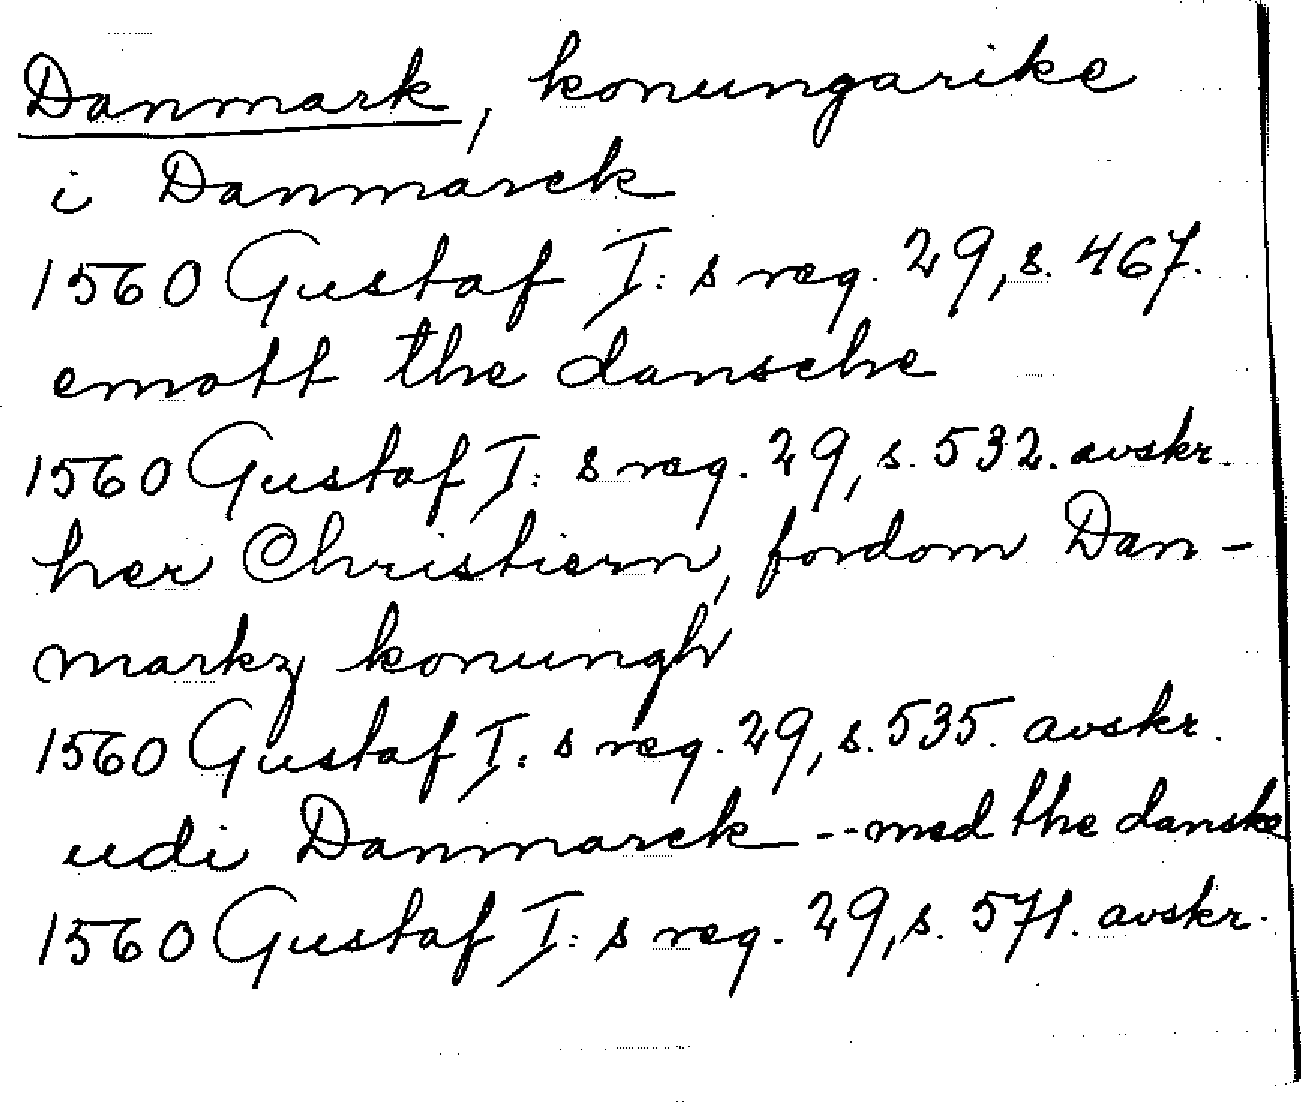 Danmark, konungarike
i Danmarck
1560 Gustaf I:s reg. 29, s. 467.
emott the dansche
1560 Gustaf I:s reg. 29, s. 532. avskr.
her Christiern, fordom Dan-
markz konungh
1560 Gustaf I:s reg. 29, s. 535. avskr.
udi Danmarck -- med the danske
1560 Gustaf I:s reg. 29, s. 571. avskr.